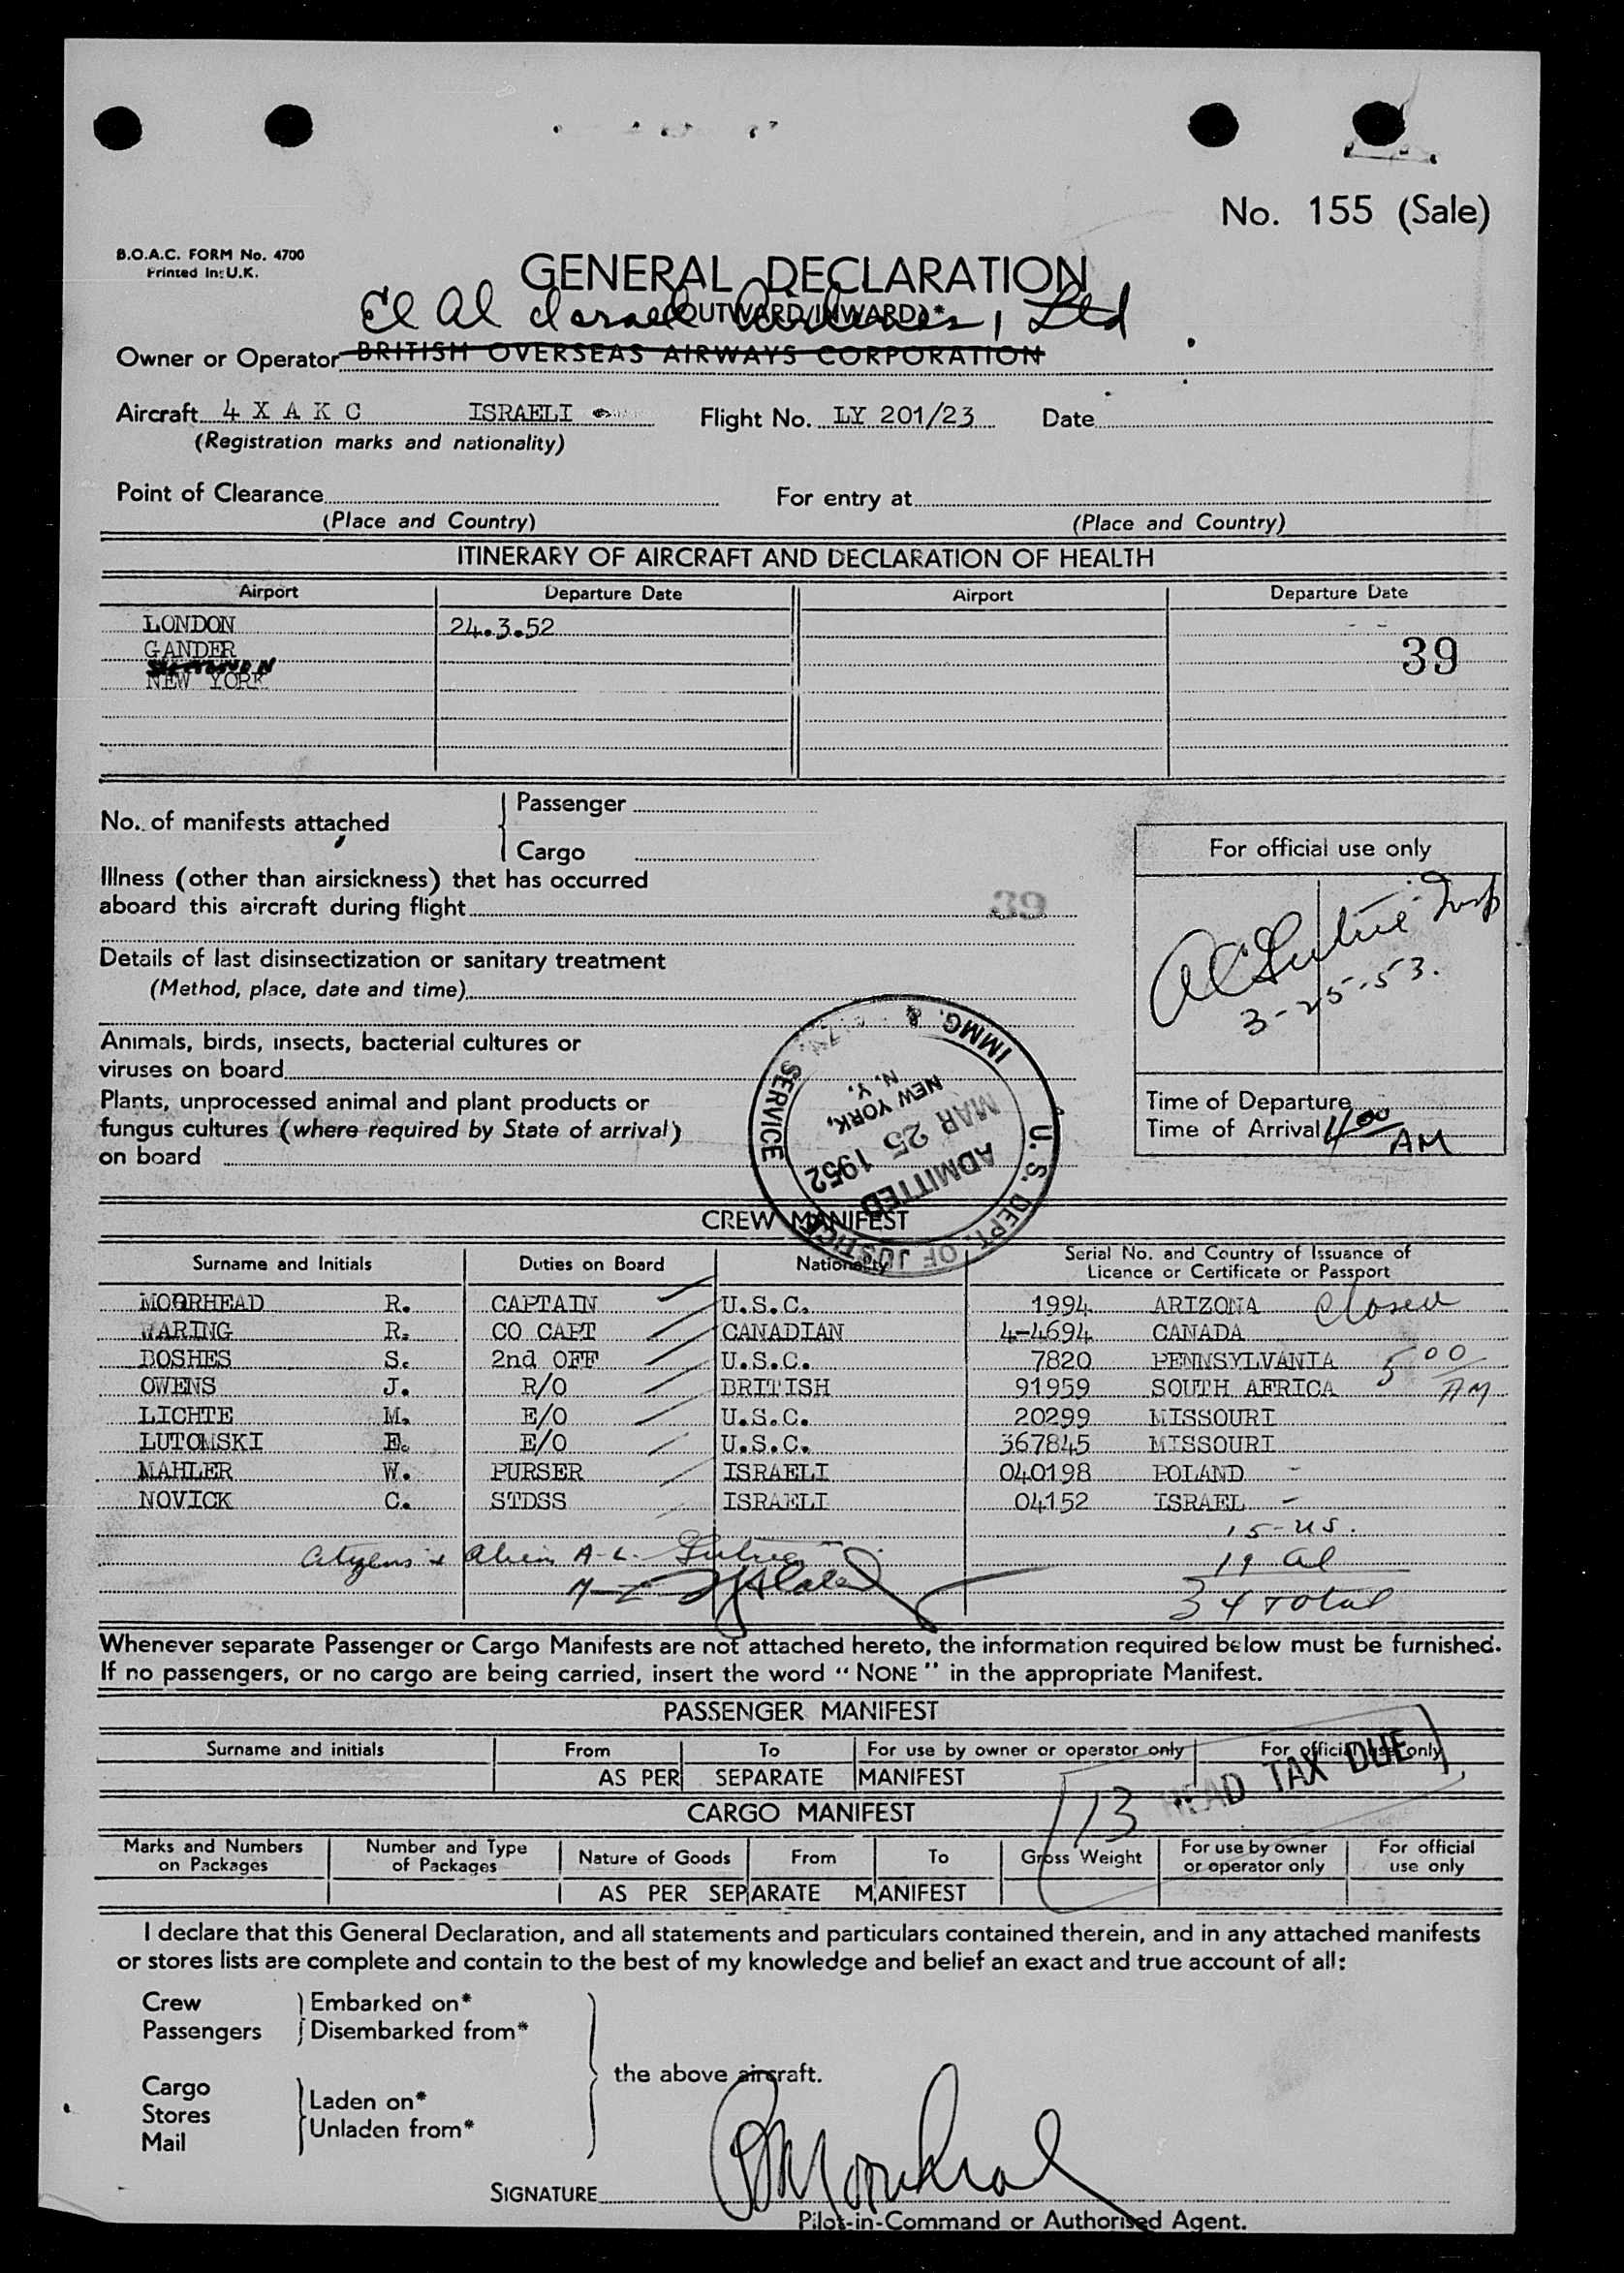 No. 155 (Sale)
B.O.A.C. FORM No. 4700
Printed in U.K.
GENERAL DECLARATION
(OUTWARD/INWARD)*
El Al Israel Airlines, Ltd
Owner or Operator BRITISH OVERSEAS AIRWAYS CORPORATION
Aircraft 4 X A K C ISRAELI Flight No. LY 201/23 Date
(Registration marks and nationality)
Point of Clearance For entry at
(Place and Country) (Place and Country)
ITINERARY OF AIRCRAFT AND DECLARATION OF HEALTH
Airport Departure Date Airport Departure Date
LONDON 24.3.52
GANDER 39
NEW YORK
No. of manifests attached { Passenger
Cargo
Illness (other than airsickness) that has occurred
aboard this aircraft during flight 39
Details of last disinsectization or sanitary treatment
(Method, place, date and time)
Animals, birds, insects, bacterial cultures or
viruses on board
Plants, unprocessed animal and plant products or
fungus cultures (where required by State of arrival)
on board
For official use only
3-25-53.
Time of Departure
Time of Arrival 4 00 AM
U. S. DEPT. OF JUSTICE
IMMG. & SERVICE
NEW YORK, N. Y.
MAR 25 1952
ADMITTED
CREW MANIFEST
Surname and Initials Duties on Board Nationality Serial No. and Country of Issuance of
Licence or Certificate or Passport
MOORHEAD R. CAPTAIN U.S.C. 1994 ARIZONA Closed
WARING R. CO CAPT CANADIAN 4-4694 CANADA
BOSHES S. 2nd OFF U.S.C. 7820 PENNSYLVANIA 5 00
OWENS J. R/O BRITISH 91959 SOUTH AFRICA AM
LICHTE M. E/O U.S.C. 20299 MISSOURI
LUTOMSKI E. E/O U.S.C. 367845 MISSOURI
MAHLER W. PURSER ISRAELI 040198 POLAND -
NOVICK C. STDSS ISRAELI 04152 ISRAEL -
15-US.
Citizens & Alien 19 al
34 Total
Whenever separate Passenger or Cargo Manifests are not attached hereto, the information required below must be furnished.
If no passengers, or no cargo are being carried, insert the word "NONE" in the appropriate Manifest.
PASSENGER MANIFEST
Surname and initials From To For use by owner or operator only For official use only
AS PER SEPARATE MANIFEST
13 HEAD TAX DUE
CARGO MANIFEST
Marks and Numbers on Packages Number and Type of Packages Nature of Goods From To Gross Weight For use by owner or operator only For official use only
AS PER SEPARATE MANIFEST
I declare that this General Declaration, and all statements and particulars contained therein, and in any attached manifests
or stores lists are complete and contain to the best of my knowledge and belief an exact and true account of all:
Crew } Embarked on*
Passengers } Disembarked from*
the above aircraft.
Cargo
Stores } Laden on*
Mail } Unladen from*
SIGNATURE R Moorhead
Pilot-in-Command or Authorised Agent.